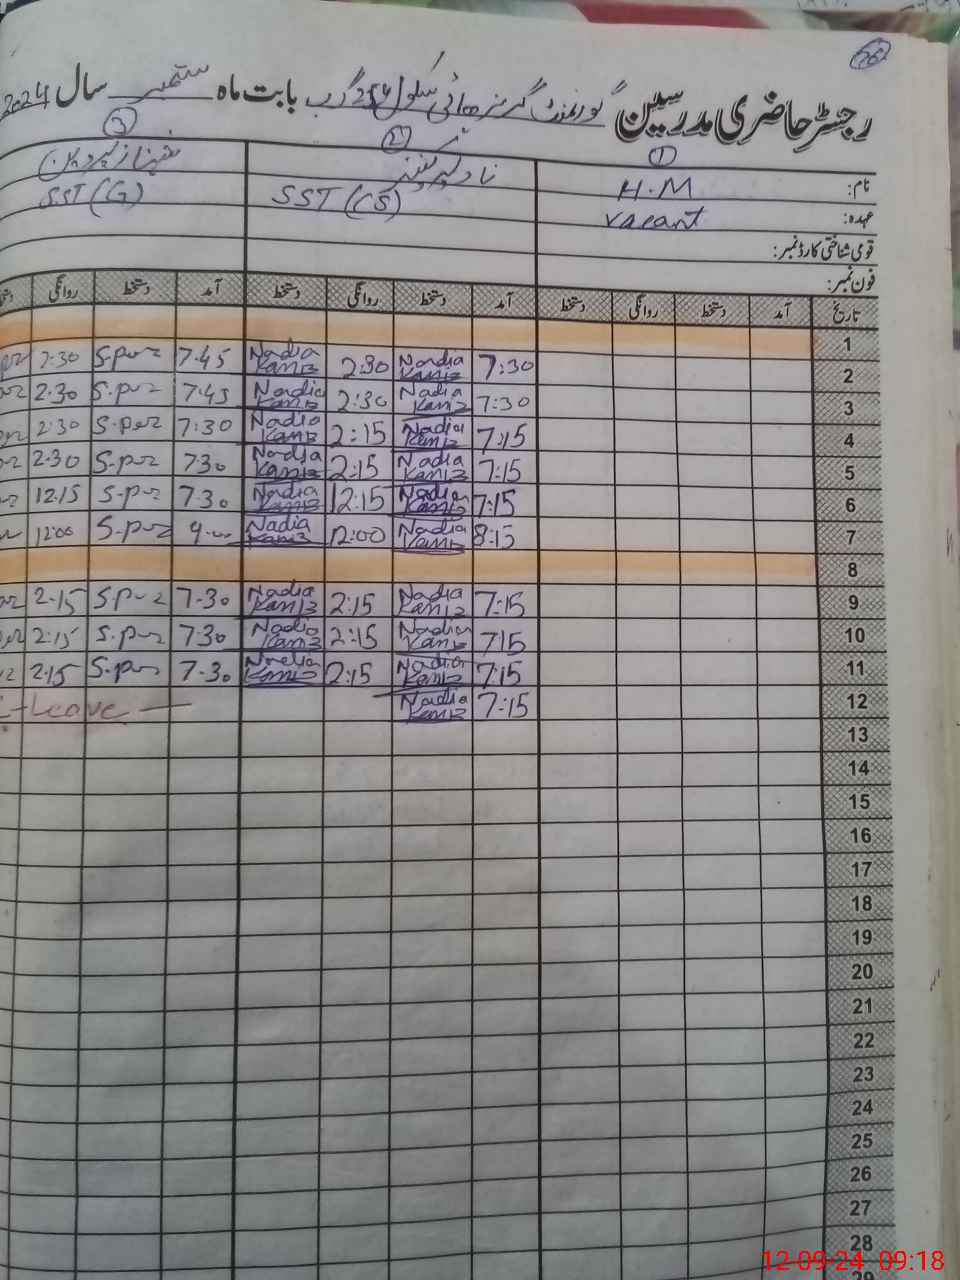 26
رجسٹر حاضری مدرسین گورنمنٹ گرلز ہائی سکول 256 ر ب بابت ماہ ستمبر سال 2024
① ② ③
نام: H.M نادیہ کنیز
عہدہ: Vacant SST (CS) SST (G)
قومی شناختی کارڈ نمبر:
فون نمبر:
تاریخ آمد دستخط روانگی دستخط آمد دستخط روانگی دستخط آمد دستخط روانگی
1
2 7:30 Nadia Kaniz 2:30 Nadia Kaniz 7.45 7:30
3 7:30 Nadia Kaniz 2:30 Nadia Kaniz 7.45 2.30
4 7:15 Nadia Kaniz 2:15 Nadia Kaniz 7:30 2:30
5 7:15 Nadia Kaniz 2:15 Nadia Kaniz 7.30 2.30
6 7:15 Nadia Kaniz 12:15 Nadia Kaniz 7.30 12.15
7 8:15 Nadia Kaniz 12:00 Nadia Kaniz 12:00
8
9 7:15 Nadia Kaniz 2:15 Nadia Kaniz 7.30 2.15
10 7:15 Nadia Kaniz 2:15 Nadia Kaniz 7.30 2:15
11 7:15 Nadia Kaniz 2:15 Nadia Kaniz 7.30 2.15
12 7:15 Nadia Kaniz Leave
13
14
15
16
17
18
19
20
21
22
23
24
25
26
27
28
29
12-09-24 09:18